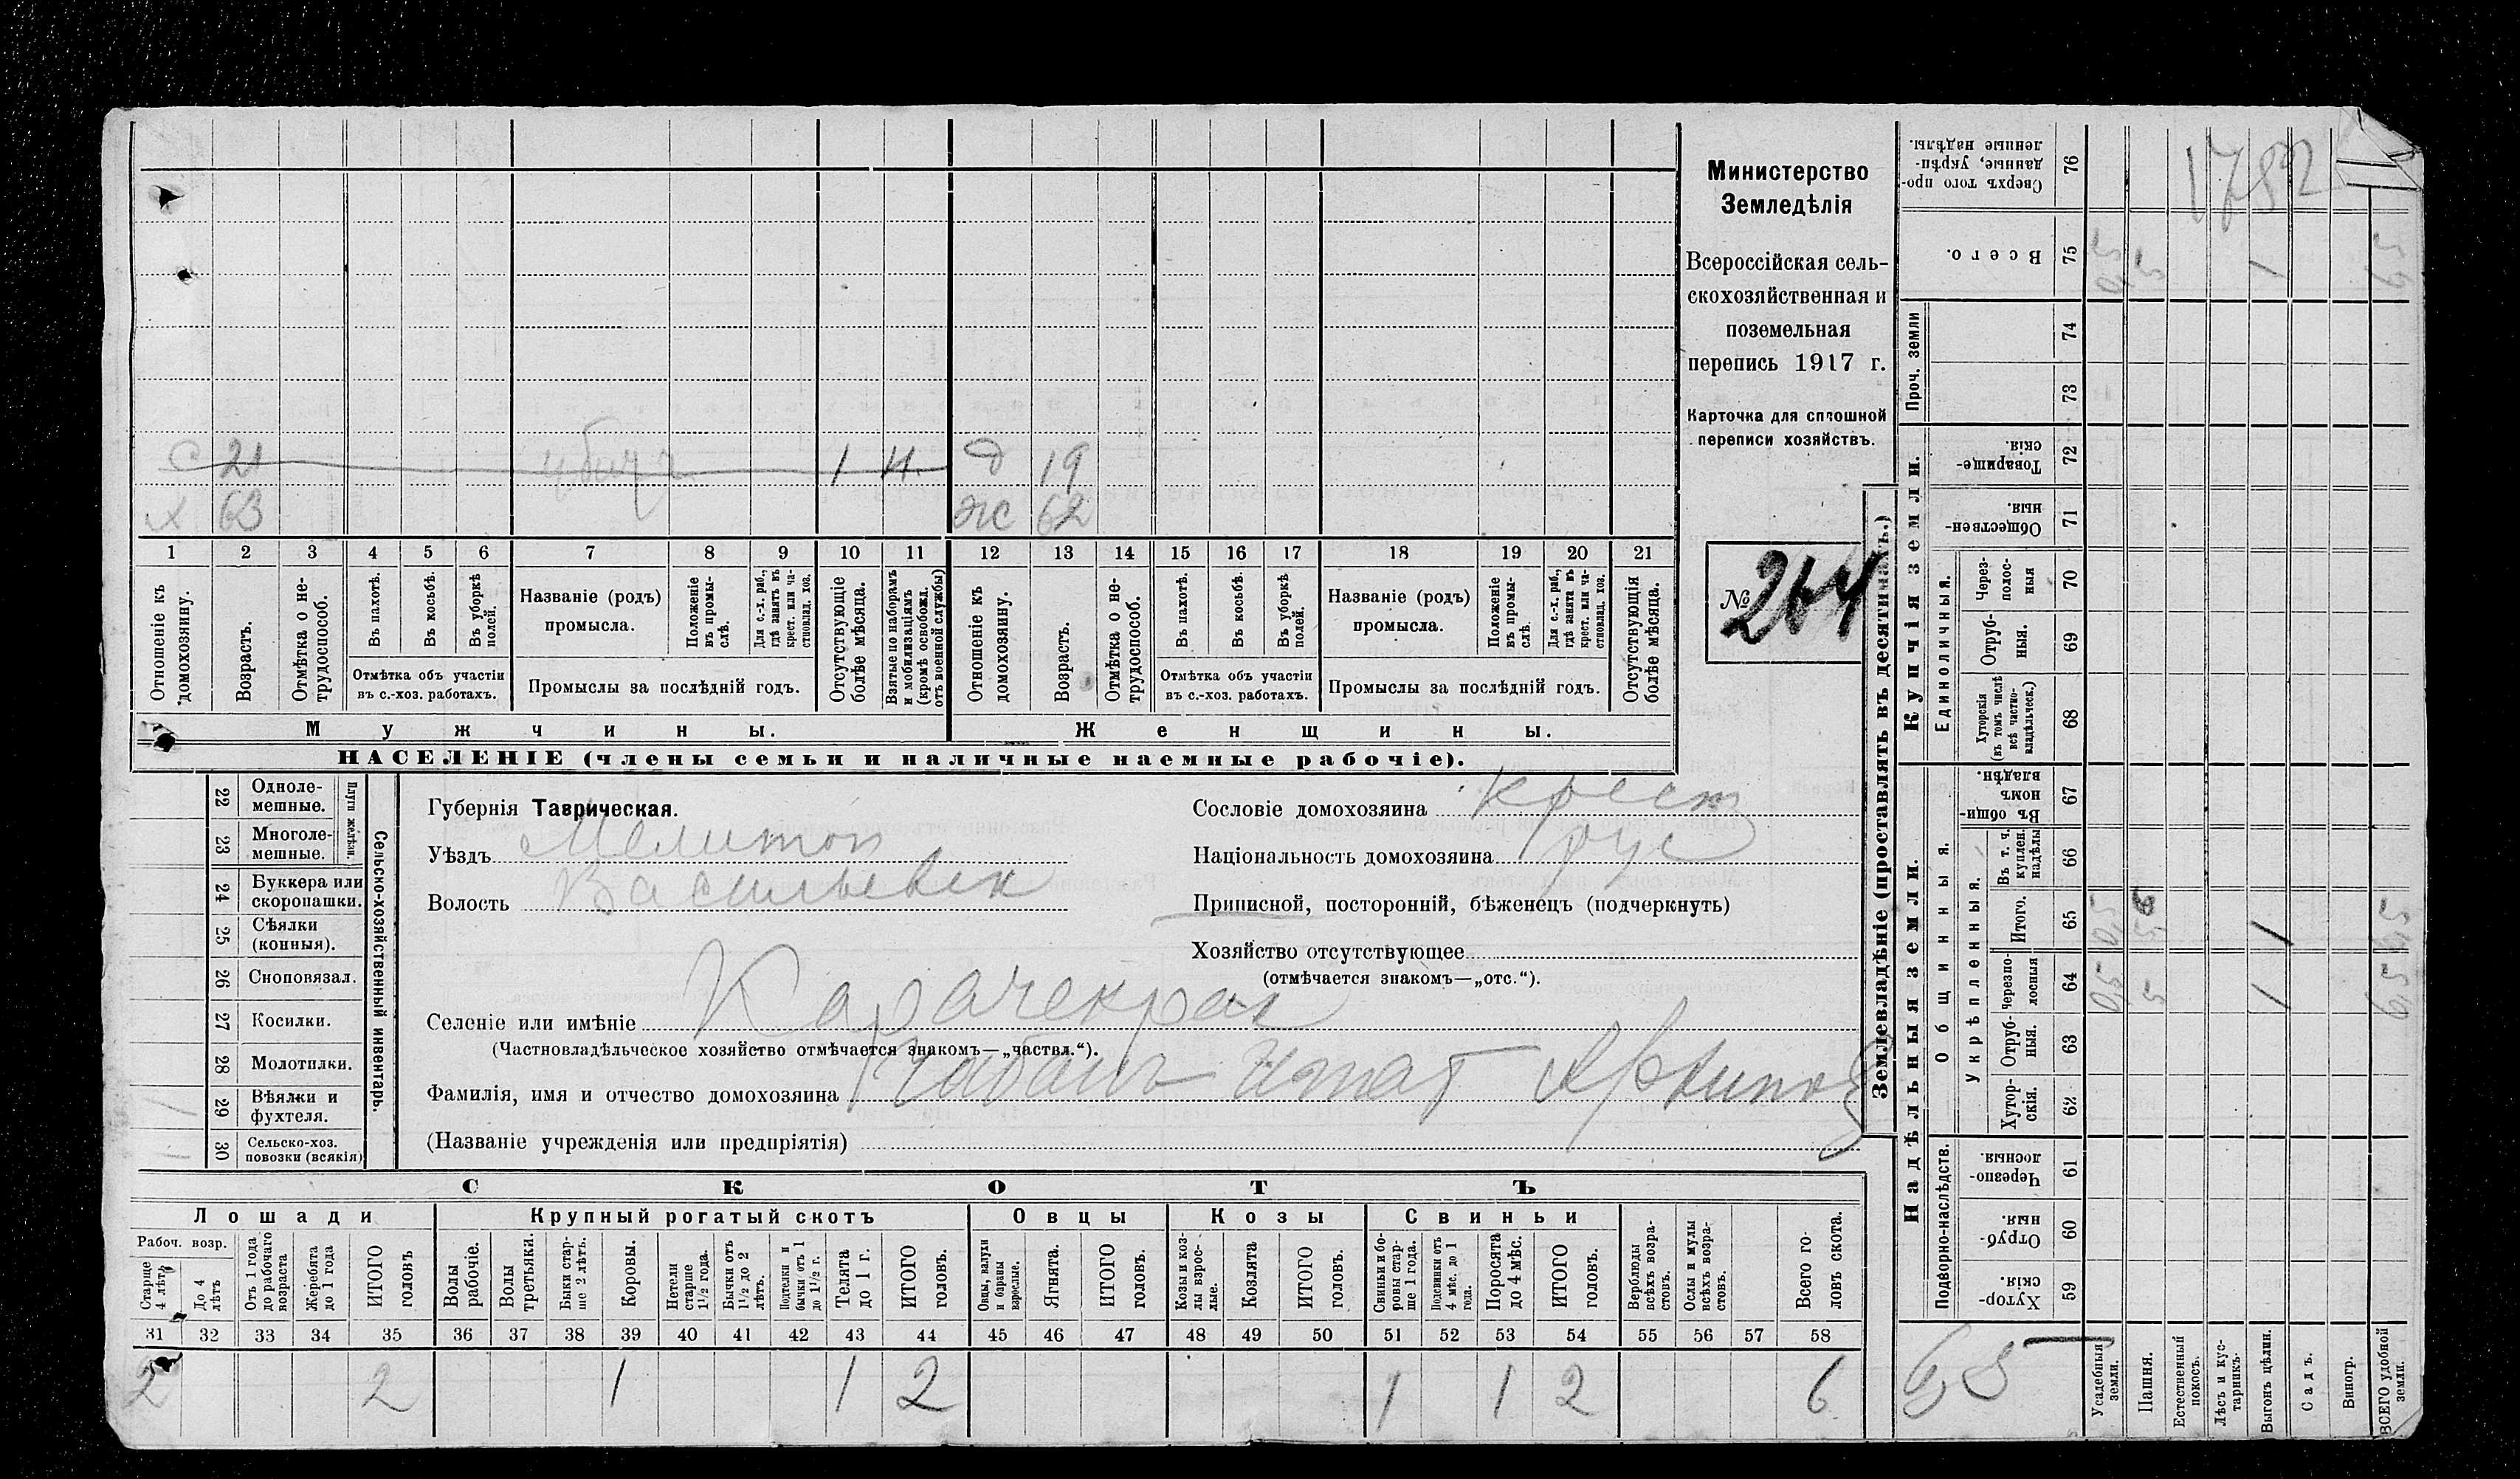 Министерство
Земледѣлія
Всероссійская сель-
скохозяйственная и
поземельная
перепись 1917 г.
Карточка для сплошной
переписи хозяйствъ.
№ 264
с 21 1 н. д 19
х 63 ж 62
1 2 3 4 5 6 7 8 9 10 11 12 13 14 15 16 17 18 19 20 21
Отношеніе къ домохозяину.
Возрастъ.
Отмѣтка о не-трудоспособ.
Въ пахотѣ.
Въ косьбѣ.
Въ уборкѣ полей.
Отмѣтка объ участіи
въ с.-хоз. работахъ.
Названіе (родъ)
промысла.
Положеніе въ промы-слѣ.
Для с.-х. раб., гдѣ занятъ въ крест. или ча-стновлад. хоз.
Промыслы за послѣдній годъ.
Отсутствующіе болѣе мѣсяца.
Взятые по наборамъ и мобилизаціямъ (кромѣ освобожд. отъ военной службы)
Отношеніе къ домохозяину.
Возрастъ.
Отмѣтка о не-трудоспособ.
Въ пахотѣ.
Въ косьбѣ.
Въ уборкѣ полей.
Отмѣтка объ участіи
въ с.-хоз. работахъ.
Названіе (родъ)
промысла.
Положеніе въ промы-слѣ.
Для с.-х. раб., гдѣ занята въ крест. или ча-стновлад. хоз.
Промыслы за послѣдній годъ.
Отсутствующія болѣе мѣсяца.
Мужчины.
Женщины.
НАСЕЛЕНІЕ (члены семьи и наличные наемные рабочіе).
Сельско-хозяйственный инвентарь.
Плуги желѣзн.
22 Одноле-мешные.
23 Многоле-мешные.
24 Буккера или скоропашки.
25 Сѣялки (конныя).
26 Сноповязал.
27 Косилки.
28 Молотилки.
29 Вѣялки и фухтеля. 1
30 Сельско-хоз. повозки (всякія) 1
Губернія Таврическая.
Уѣздъ Мелитоп
Волость Васильевск
Сословіе домохозяина крест
Національность домохозяина рус
Приписной, посторонній, бѣженецъ (подчеркнуть)
Хозяйство отсутствующее
(отмѣчается знакомъ—„отс.“).
Селеніе или имѣніе Карачекрак
(Частновладѣльческое хозяйство отмѣчается знакомъ—„частвл.“).
Фамилія, имя и отчество домохозяина Чабань Игнат Архипов
(Названіе учрежденія или предпріятія)
СКОТЪ
Лошади Крупный рогатый скотъ Овцы Козы Свиньи
Рабоч. возр.
Старше 4 лѣтъ
До 4 лѣтъ
Отъ 1 года до рабочаго возраста
Жеребята до 1 года
ИТОГО головъ
Волы рабочіе.
Волы третьяки.
Быки стар-ше 2 лѣтъ.
Коровы.
Нетели старше 1½ года.
Бычки отъ 1½ до 2 лѣтъ.
Подтелки и бычки отъ 1 до 1½ г.
Телята до 1 г.
ИТОГО головъ.
Овцы, валухи и бараны взрослые.
Ягнята.
ИТОГО головъ.
Козы и коз-лы взрос-лые.
Козлята
ИТОГО головъ.
Свиньи и бо-ровы стар-ше 1 года.
Подсвинки отъ 4 мѣс. до 1 года.
Поросята до 4 мѣс.
ИТОГО головъ.
Верблюды всѣхъ возра-стовъ.
Ослы и мулы всѣхъ возра-стовъ.
Всего го-ловъ скота.
31 32 33 34 35 36 37 38 39 40 41 42 43 44 45 46 47 48 49 50 51 52 53 54 55 56 57 58
2 2 1 1 2 1 1 2 6
Землевладѣніе (проставлять въ десятинахъ.)
Надѣльныя земли.
Купчія земли.
Проч. земли
Подворно-наслѣдств.
Общинныя.
Укрѣпленныя.
Единоличныя.
76 Сверхъ того про-данные, укрѣп-ленные надѣлы. 1782
75 Всего. 0,5 5 1 6,5
74
73
72 Товарище-скія.
71 Обществен-ныя.
70 Через-полос-ныя
69 Отруб-ныя.
68 Хуторскія (въ томъ числѣ всѣ частно-владѣльческ.)
67 Въ общин-номъ владѣн.
66 Въ т. ч. куплен. надѣлы
65 Итого. 0,5 1 6,5
64 Черезпо-лосныя 0,5 5 1 6,5
63 Отруб-ныя.
62 Хутор-скія.
61 Черезпо-лосныя.
60 Отруб-ныя.
59 Хутор-скія.
6,5
Усадебныя земли.
Пашня.
Естественный покосъ.
Лѣсъ и кус-тарникъ.
Выгонъ цѣлин.
Садъ.
Виногр.
ВСЕГО удобной земли.